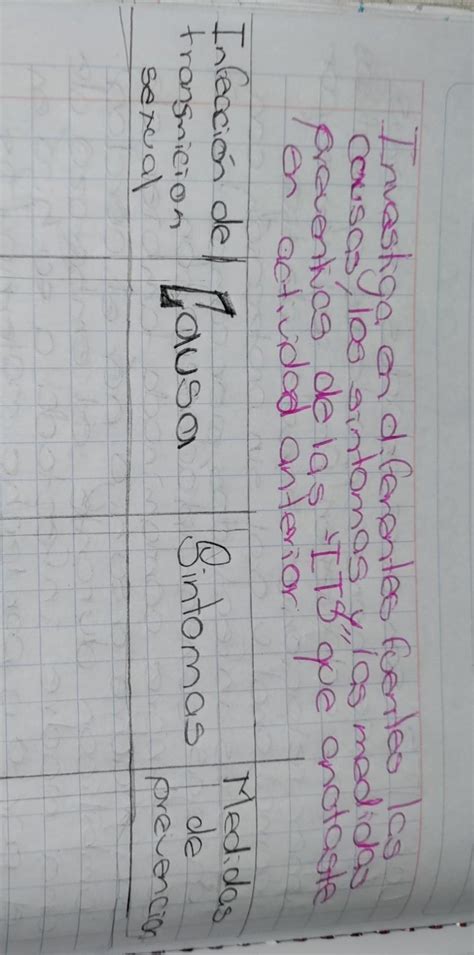 Investiga en diferentes fuentes las
causas, los sintomas y las medidas
preventivas de las "ITS" que anotaste
en actividad anterior.
Infección de
transmicion
sexual
Causa
Sintomas
Medidas
de
prevencion